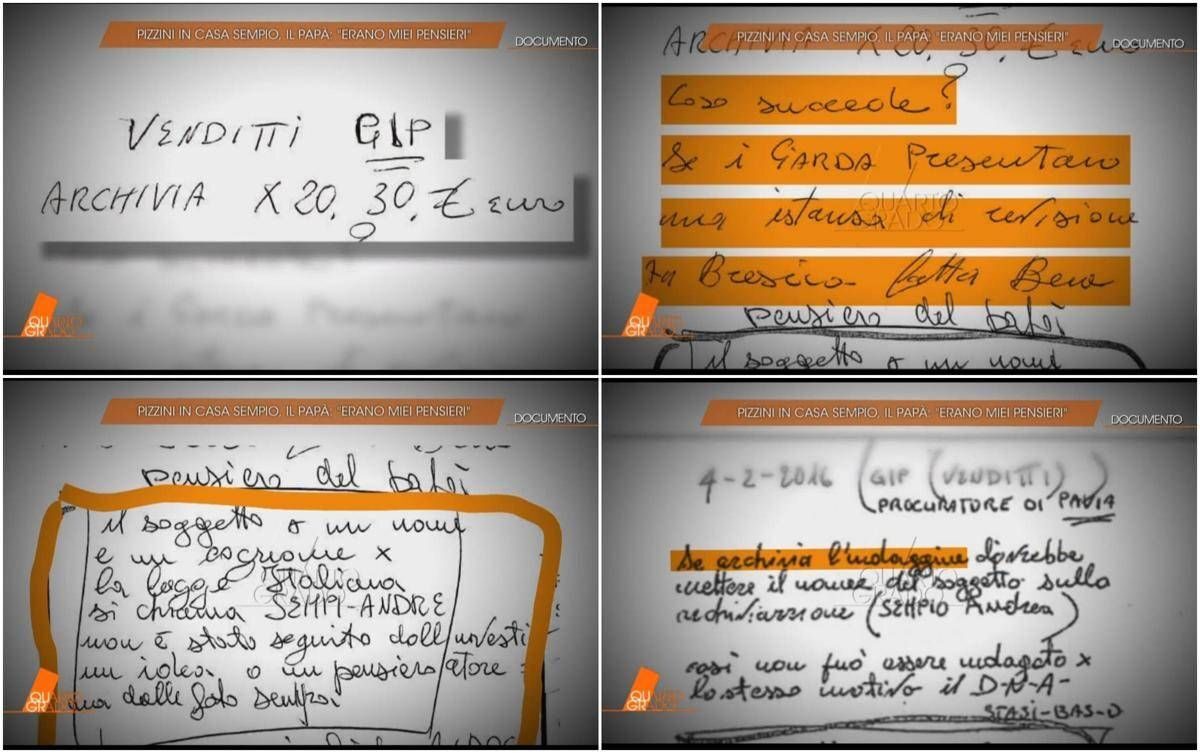 PIZZINI IN CASA SEMPIO, IL PAPÀ: "ERANO MIEI PENSIERI"
DOCUMENTO
VENDITTI GIP
ARCHIVIA X 20. 30. € euro
QUARTO
GRADO
PIZZINI IN CASA SEMPIO, IL PAPÀ: "ERANO MIEI PENSIERI"
DOCUMENTO
ARCHIVIA X 20. 30. € euro
Cosa succede?
Se i GARDA Presentano
una istansa di revisione
Brescia fatta Bene
pensiero del
il soggetto a un nome
QUARTO
GRADO
QUARTO
GRADO
PIZZINI IN CASA SEMPIO, IL PAPÀ: "ERANO MIEI PENSIERI"
DOCUMENTO
pensiero del
il soggetto a un nome
e un cognome x
la legge Italiana
si chiama SEMPI-ANDRE
non è stato seguito dall'investi
un idea o un pensiero atore
dalle foto
QUARTO
GRADO
PIZZINI IN CASA SEMPIO, IL PAPÀ: "ERANO MIEI PENSIERI"
DOCUMENTO
4-2-2016 (GIP (VENDITTI)
(PROCURATORE DI PAVIA
Se archivia l'indaggine dovrebbe
mettere il nome del soggetto sulla
(SEMPIO Andrea)
cosi non può essere indagato x
lo stesso motivo il D-N-A-
STASI-BAS-O
QUARTO
GRADO